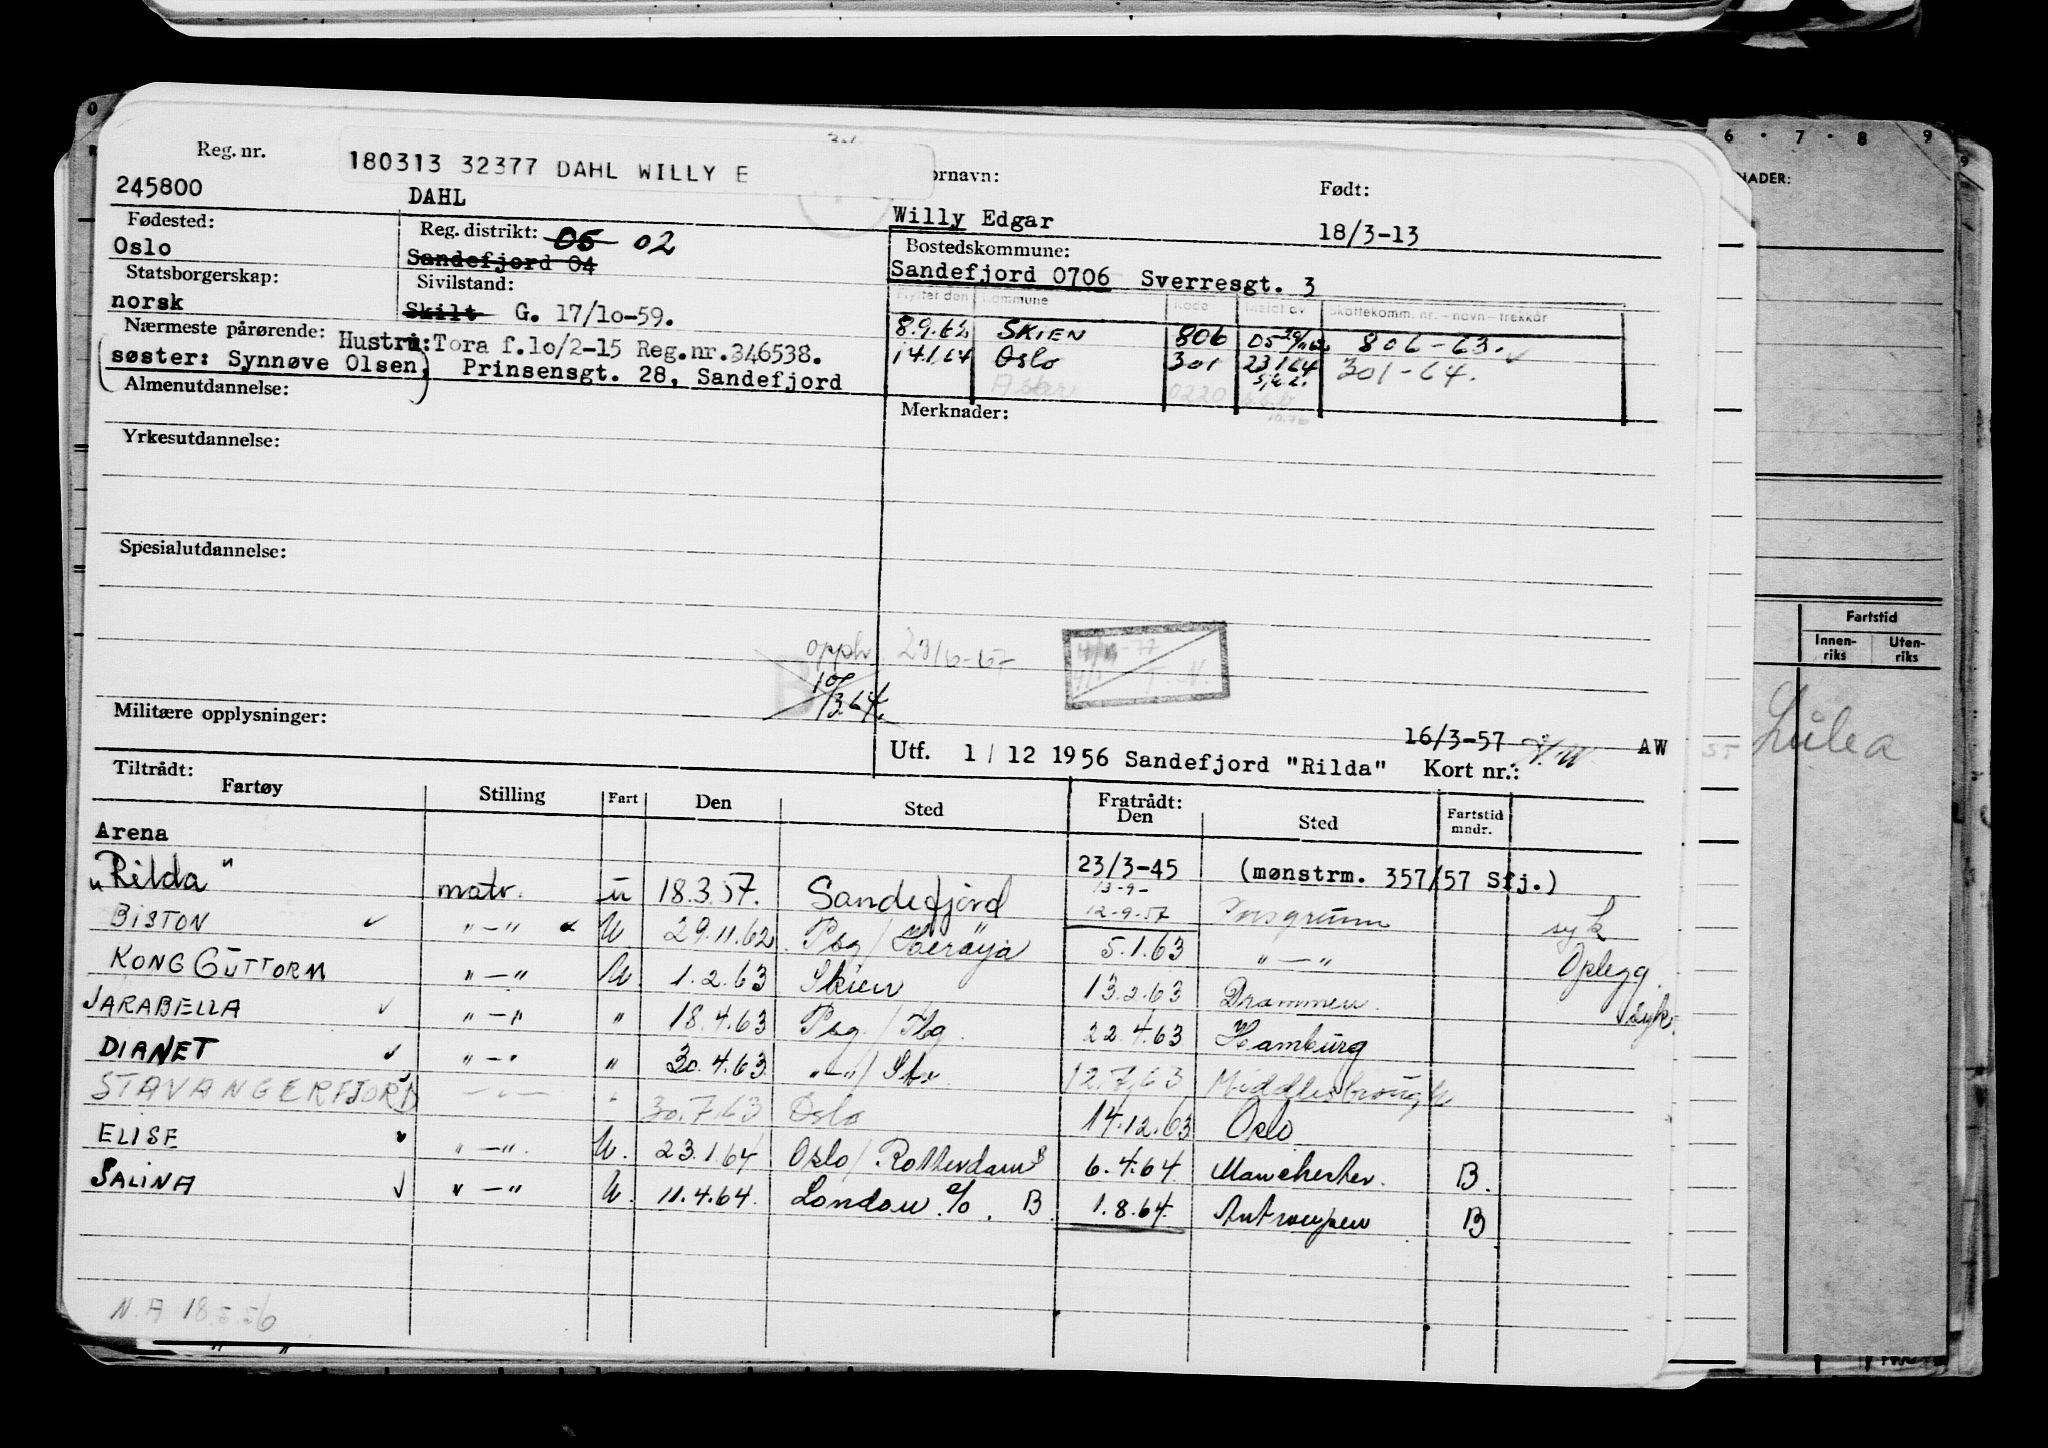 Reg. nr.
180313 32377 DAHL WILLY E
ornavn:
Født:
245800
DAHL
Willy Edgar
18/3-13
Fødested:
Reg. distrikt: 05 02
Bostedskommune:
Oslo
Sandefjord 04
Sandefjord 0706 Sverresgt. 3
Statsborgerskap:
Sivilstand:
norsk
Skilt G. 17/10-59.
Flyttet den Kommune Kode Meldt av Skattekomm. nr. - navn - trekkår
8.9.62 SKIEN 806 05 806-63.
14.1.64 Oslo 301 23164 301-64.
Asker 0220
Nærmeste pårørende: Hustru: Tora f.10/2-15 Reg.nr.346538.
søster: Synnøve Olsen, Prinsensgt. 28, Sandefjord
Almenutdannelse:
Merknader:
Yrkesutdannelse:
Spesialutdannelse:
opph.
Militære opplysninger:
16/3-57 AW
Utf. 1/12 1956 Sandefjord "Rilda" Kort nr.:
Tiltrådt:
Fartøy Stilling Fart Den Sted Fratrådt: Den Sted Fartstid mndr.
Arena 23/3-45 (mønstrm. 357/57 Sfj.)
"Rilda" matr. u 18.3.57. Sandefjord 13-9- 12-9-57 Porsgrunn syk
BISTON "-" U. 29.11.62 Psg/Herøya 5.1.63 "-" Oplegg.
KONG GUTTORM "-" U. 1.2.63 Skien 13.2.63 Drammen. syk.
JARABELLA "-" " 18.4.63 Psg./Hbg. 22.4.63 Hamburg
DIANET "-" " 30.4.63 "-"/ 12.7.63 Middlesbrough
STAVANGERFJORD -"- " 30.7.63 Oslo 14.12.63 Oslo
ELISE "-" U. 23.1.64 Oslo/Rotterdam B 6.4.64. Manchester. B.
SALINA "-" U. 11.4.64. London %. B. 1.8.64. Antwerpen B
N.A 18.5.56
6 7 8 9
NADER:
Fartstid
Innenriks
Utenriks
Luleå